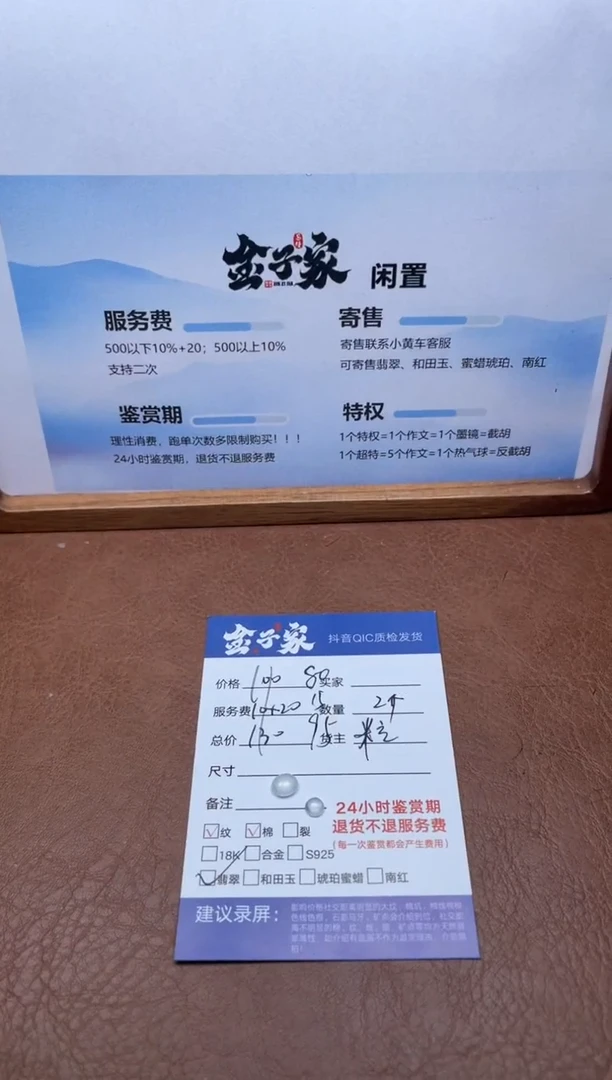 金子家 闲置
服务费
500以下10%+20；500以上10%
支持二次
寄售
寄售联系小黄车客服
可寄售翡翠、和田玉、蜜蜡琥珀、南红
鉴赏期
理性消费，跑单次数多限制购买！！！
24小时鉴赏期，退货不退服务费
特权
1个特权=1个作文=1个墨镜=截胡
1个超特=5个作文=1个热气球=反截胡
金子家 抖音QIC质检发货
价格 100 80 买家
服务费 10+20 15 数量 2个
总价 130 95 货主
尺寸
备注
24小时鉴赏期
退货不退服务费
(每一次鉴赏都会产生费用)
纹 棉 裂
18K 合金 S925
翡翠 和田玉 琥珀蜜蜡 南红
建议录屏：